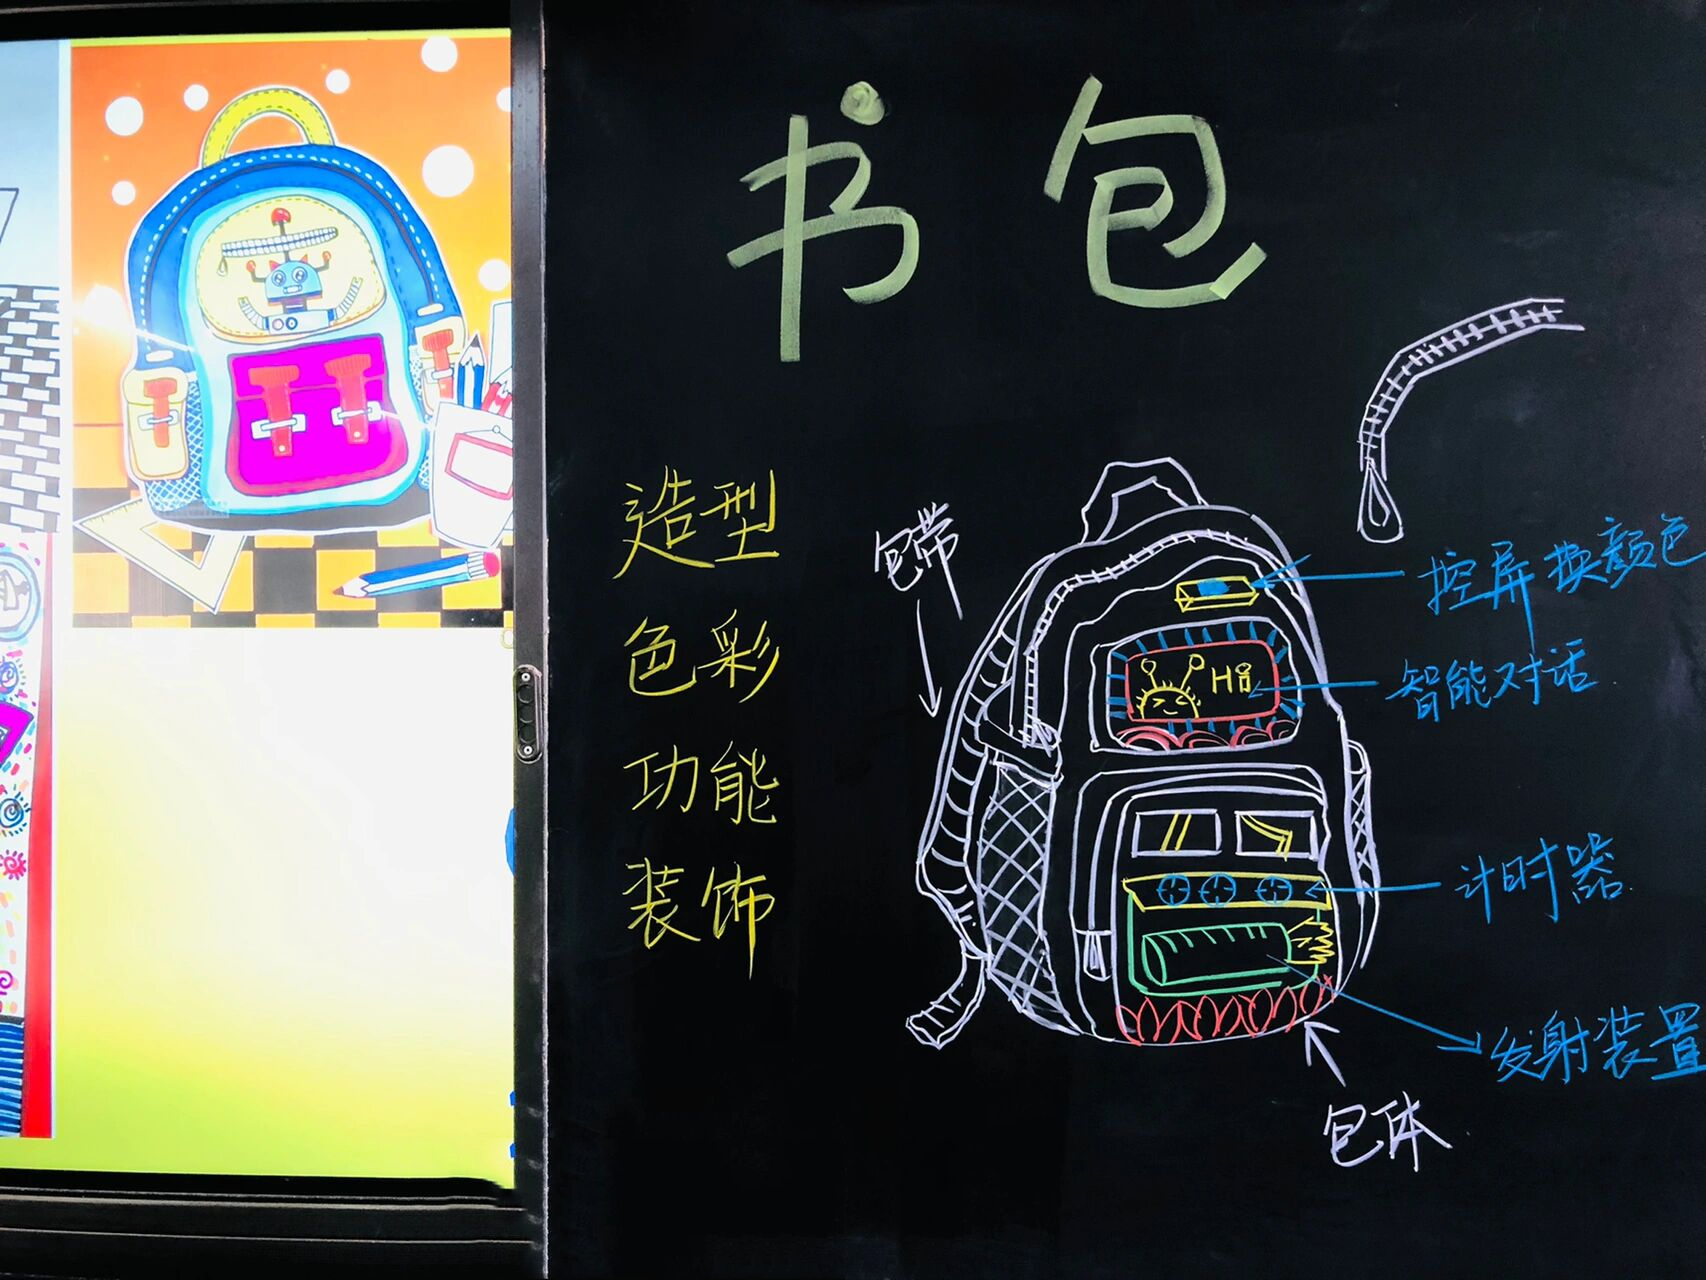 书包
造型
色彩
功能
装饰
包带
控屏换颜色
Hi
智能对话
计时器
发射装置
包体